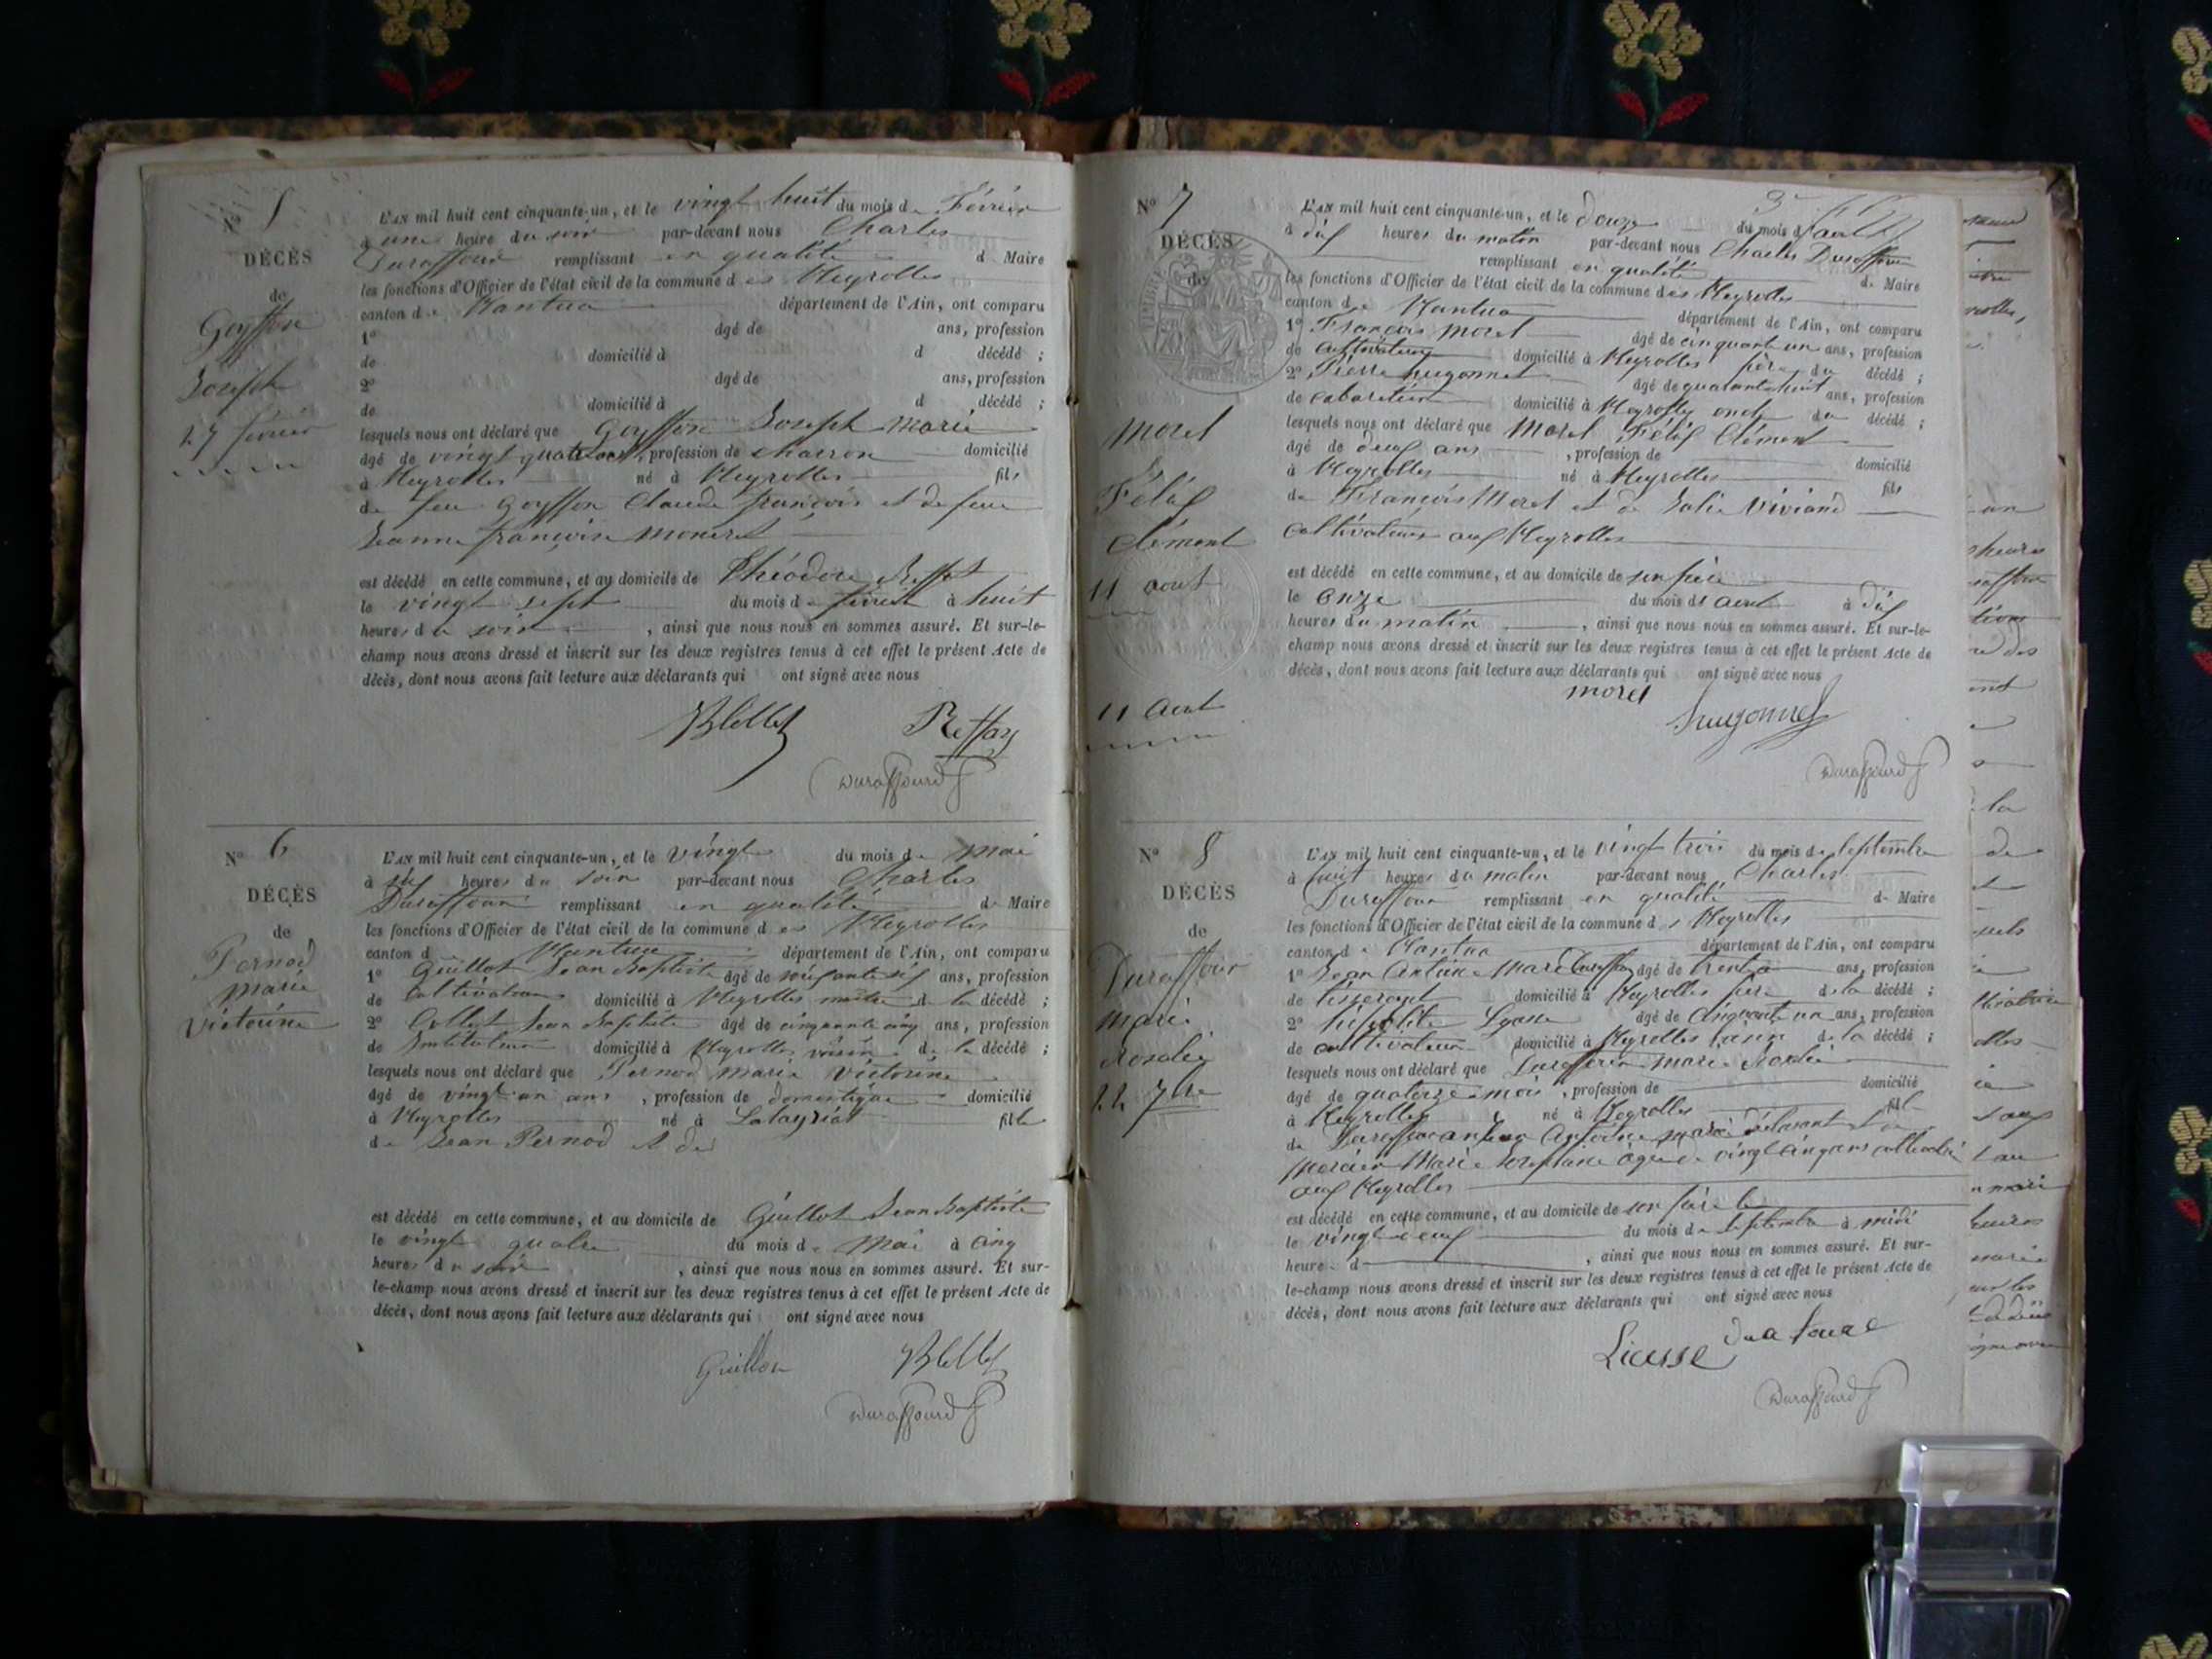 N° 5
DÉCÈS
de
Goyffon
Joseph
27 février
L'AN mil huit cent cinquante-un, et le vingt huit du mois de Février
à une heure du soir par-devant nous Charles
Duraffour remplissant en qualité de Maire
les fonctions d'Officier de l'état civil de la commune des Neyrolles
canton de Nantua département de l'Ain, ont comparu
1° âgé de ans, profession
de domicilié à d décédé ;
2° âgé de ans, profession
de domicilié à d décédé ;
lesquels nous ont déclaré que Goyffon Joseph Marie
âgé de vingt quatre ans, profession de charron domicilié
à Neyrolles né à Neyrolles fils
de feu Goyffon Claude françois et de feue
Jeanne françoise Moneret
est décédé en cette commune, et au domicile de Théodore Reffay
le vingt sept du mois de février à huit
heures du soir, ainsi que nous nous en sommes assuré. Et sur-le-
champ nous avons dressé et inscrit sur les deux registres tenus à cet effet le présent Acte de
décès, dont nous avons fait lecture aux déclarants qui ont signé avec nous
Reffay
Duraffourd
N° 6
DÉCÈS
de
Pernod
Marie
Victorine
L'AN mil huit cent cinquante-un, et le vingt du mois de Mai
à six heures du soir par-devant nous Charles
Duraffour remplissant en qualité de Maire
les fonctions d'Officier de l'état civil de la commune des Neyrolles
canton d Nantua département de l'Ain, ont comparu
1° Guillot Jean Baptiste âgé de soixante six ans, profession
de Cultivateur domicilié à Neyrolles maître de la décédé ;
2° Collet Jean Baptiste âgé de cinquante cinq ans, profession
de Instituteur domicilié à Neyrolles voisin de la décédé ;
lesquels nous ont déclaré que Pernod Marie Victorine
âgé de vingt un ans, profession de domestique domicilié
à Neyrolles né à Lalleyriat fille
de Jean Pernod et de
est décédé en cette commune, et au domicile de Guillot Jean Baptiste
le vingt quatre du mois de Mai à cinq
heures du soir, ainsi que nous nous en sommes assuré. Et sur-
le-champ nous avons dressé et inscrit sur les deux registres tenus à cet effet le présent Acte de
décès, dont nous avons fait lecture aux déclarants qui ont signé avec nous
Guillot
Duraffourd
N° 7
DÉCÈS
de
Morel
Félix
Clément
11 août
11 Aout
L'AN mil huit cent cinquante-un, et le Douze du mois d'aout
à dix heures du matin par-devant nous Charles Duraffour
remplissant en qualité de Maire
les fonctions d'Officier de l'état civil de la commune des Neyrolles
canton de Nantua département de l'Ain, ont comparu
1° François Morel âgé de cinquante un ans, profession
de Cultivateur domicilié à Neyrolles père du décédé ;
2° Pierre hugonnet âgé de quarante huit ans, profession
de Cabaretier domicilié à Neyrolles oncle du décédé ;
lesquels nous ont déclaré que Morel Félix Clément
âgé de deux ans, profession de domicilié
à Neyrolles né à Neyrolles fils
de François Morel et de Julie Viviand
Cultivateurs aux Neyrolles
est décédé en cette commune, et au domicile de son père
le Onze du mois d'Aout à dix
heures du matin, ainsi que nous nous en sommes assuré. Et sur-le-
champ nous avons dressé et inscrit sur les deux registres tenus à cet effet le présent Acte de
décès, dont nous avons fait lecture aux déclarants qui ont signé avec nous
morel
hugonnet
Duraffourd
N° 8
DÉCÈS
de
Duraffour
Marie
Rosalie
22 7bre
L'AN mil huit cent cinquante-un, et le vingt trois du mois de Septembre
à huit heures du matin par-devant nous Charles
Duraffour remplissant en qualité de Maire
les fonctions d'Officier de l'état civil de la commune des Neyrolles
canton de Nantua département de l'Ain, ont comparu
1° Jean Antoine Marie Duraffour âgé de trente ans, profession
de tisserand domicilié à Neyrolles père de la décédé ;
2° hippolite âgé de cinquante un ans, profession
de cultivateur domicilié à Neyrolles de la décédé ;
lesquels nous ont déclaré que Duraffour Marie Rosalie
âgé de quatorze mois, profession de domicilié
à Neyrolles né à Neyrolles fille
de Duraffour Jean Antoine Marie déclarant et de
Mercier Marie âgée de vingt cinq ans
aux Neyrolles
est décédé en cette commune, et au domicile de son père le
le vingt deux du mois de Septembre à midi
heure d, ainsi que nous nous en sommes assuré. Et sur-
le-champ nous avons dressé et inscrit sur les deux registres tenus à cet effet le présent Acte de
décès, dont nous avons fait lecture aux déclarants qui ont signé avec nous
Duraffourd